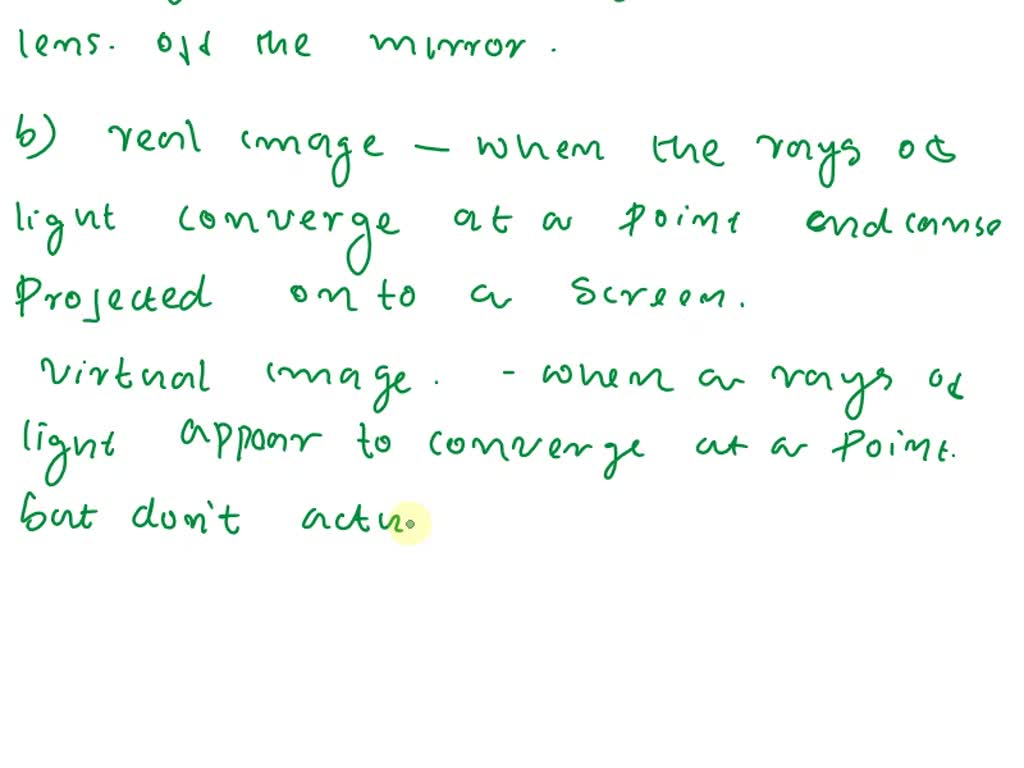 lens. off the mirror.
b) real image - when the rays of
light converge at a point and canbe
Projected on to a screen.
virtual image. - when a rays of
light appear to converge at a point.
but don't actu